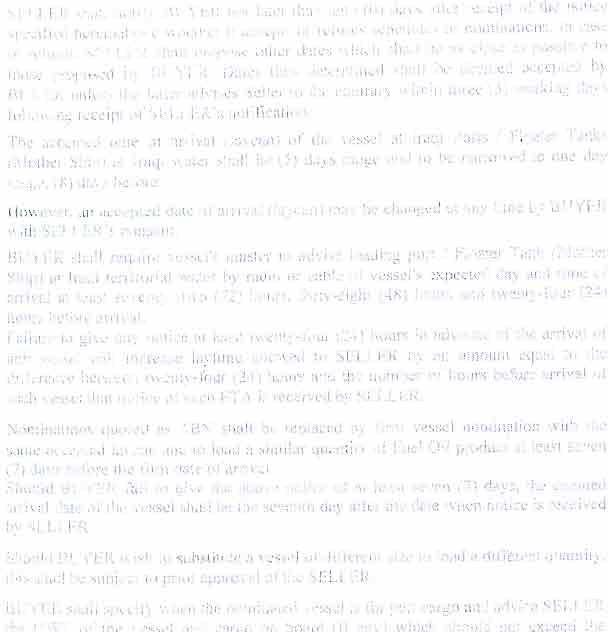 SELLER shall notify BUYER not later than ten (10) days after receipt of the notice
specified hereinabove whether it accepts or refuses schedules or nominations. In case
of refusal, SELLER shall propose other dates which shall be as close as possible to
those proposed by BUYER. Dates thus determined shall be deemed accepted by
BUYER unless the latter advises Seller to the contrary within three (3) working days
following receipt of SELLER's notification.
The accepted time of arrival (laycan) of the vessel at Iraqi Ports / Floater Tanks
(Mother Ship) in Iraqi water shall be (5) days range and to be narrowed to one day
range (8) days before.
However, an accepted date of arrival (laycan) may be changed at any time by BUYER
with SELLER's consent.
BUYER shall require vessel's master to advise loading port / Floater Tank (Mother
Ship) at Iraqi territorial water by radio or cable of vessel's expected day and time of
arrival at least seventy-two (72) hours, forty-eight (48) hours and twenty-four (24)
hours before arrival.
Failure to give any notice at least twenty-four (24) hours in advance of the arrival of
any vessel will increase laytime allowed to SELLER by an amount equal to the
difference between twenty-four (24) hours and the number of hours before arrival of
such vessel that notice of such ETA is received by SELLER.
Nominations quoted as TBN shall be replaced by firm vessel nomination with the
same accepted laycan and to load a similar quantity of Fuel Oil product at least seven
(7) days before the firm date of arrival.
Should BUYER fail to give the above notice of at least seven (7) days, the ensured
arrival date of the vessel shall be the seventh day after the date when notice is received
by SELLER.
Should BUYER wish to substitute a vessel of different size to load a different quantity,
this shall be subject to prior approval of the SELLER.
BUYER shall specify when the nominated vessel is for part cargo and advise SELLER
the of the vessel and cargo on board (if any) which should not exceed the